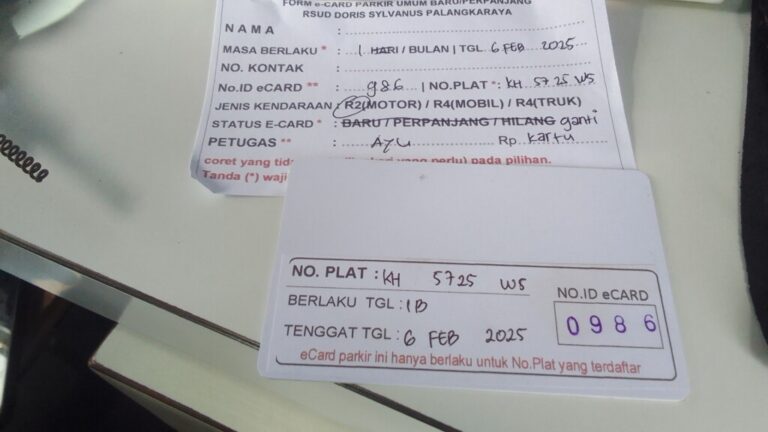 FORM e-CARD PARKIR UMUM BARU/PERPANJANG
RSUD DORIS SYLVANUS PALANGKARAYA
NAMA :
MASA BERLAKU * : 1 HARI / BULAN | TGL 6 FEB 2025
NO. KONTAK :
No.ID eCARD ** : 986 | NO.PLAT *: KH 5725 WS
JENIS KENDARAAN : R2(MOTOR) / R4(MOBIL) / R4(TRUK)
STATUS E-CARD * : BARU / PERPANJANG / HILANG ganti
PETUGAS ** : AYU Rp. kartu
coret yang perlu) pada pilihan.
Tanda (*)
NO. PLAT : KH 5725 WS
BERLAKU TGL : 1B
TENGGAT TGL : 6 FEB 2025
NO.ID eCARD
0986
eCard parkir ini hanya berlaku untuk No.Plat yang terdaftar